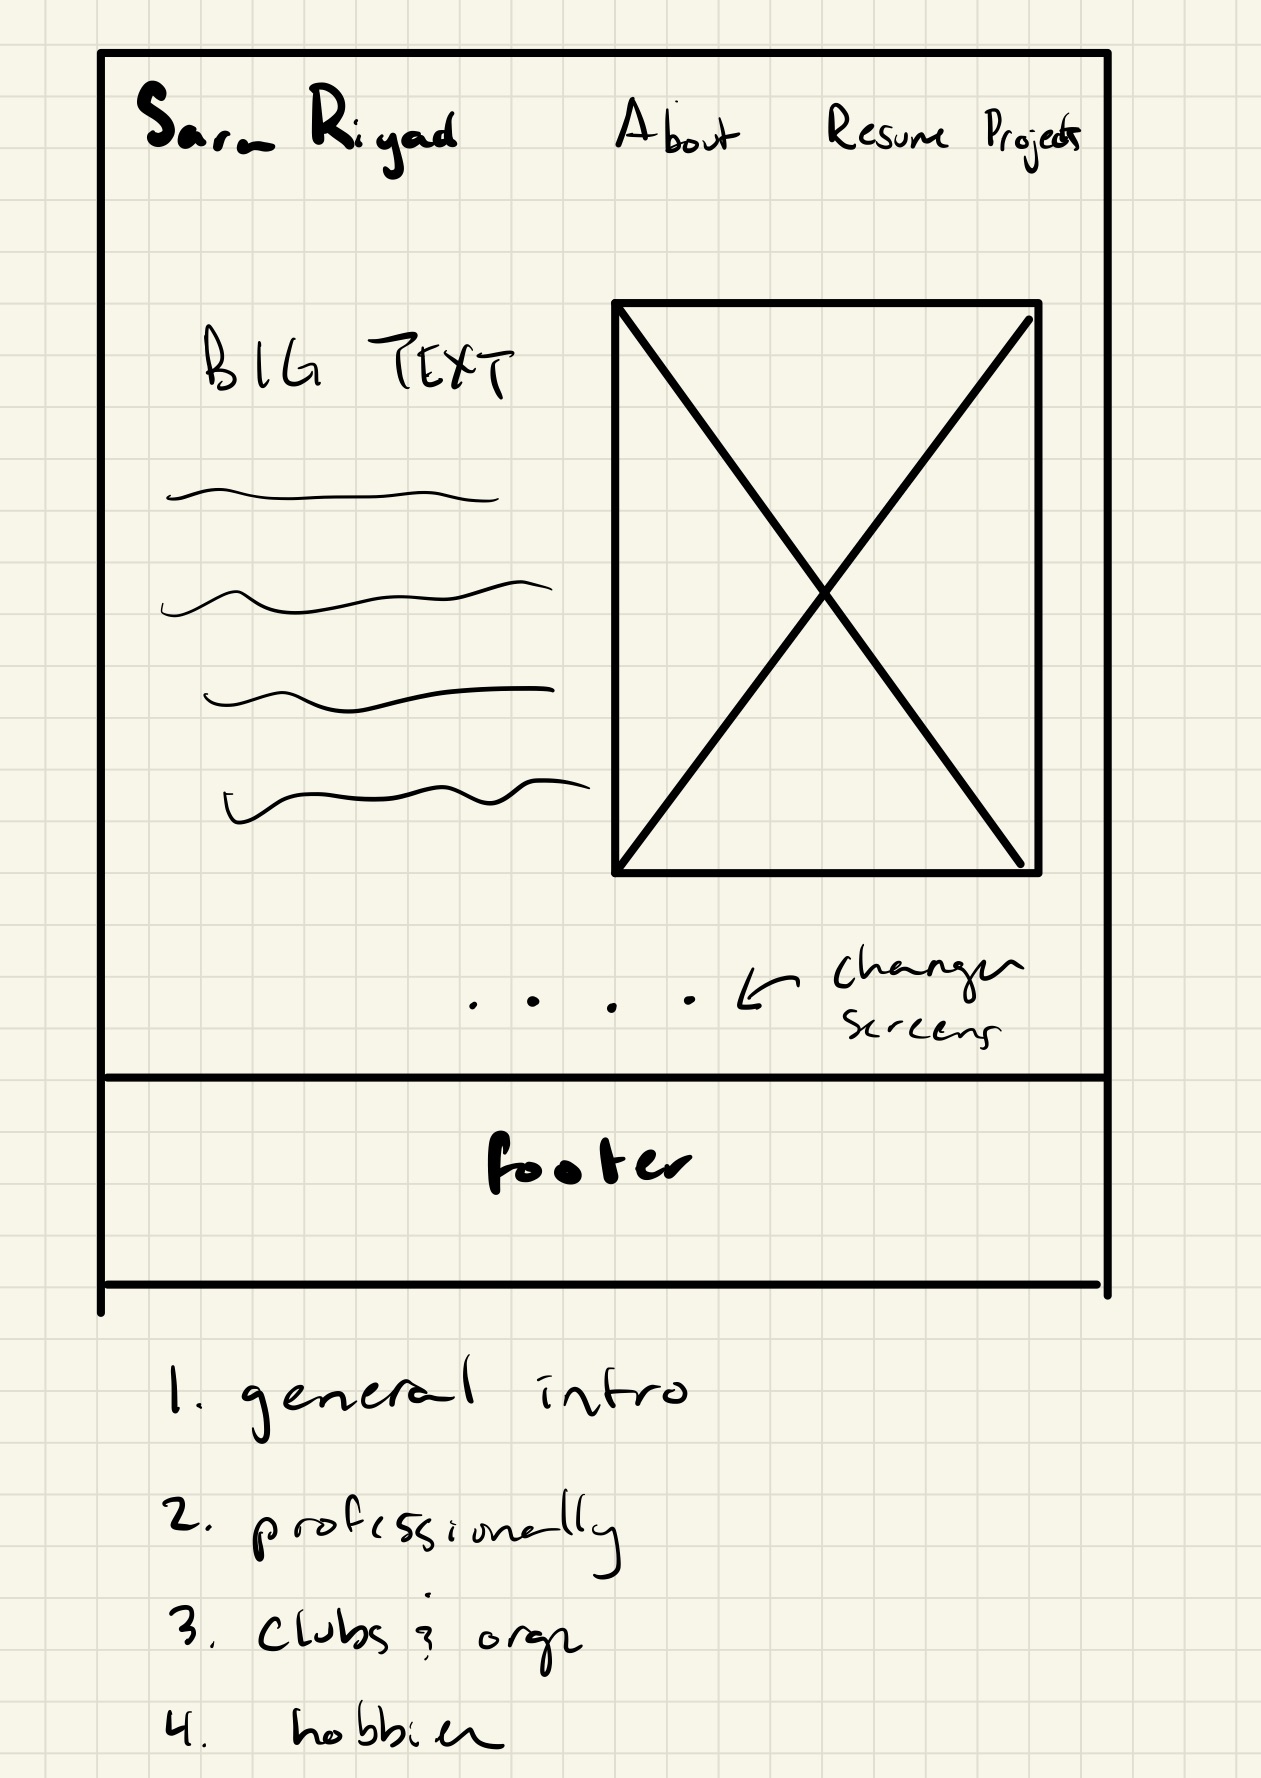 Sara Riyad About Resume Projects
BIG TEXT
changes
screens
footer
1. general intro
2. professionally
3. clubs & orgs
4. hobbies